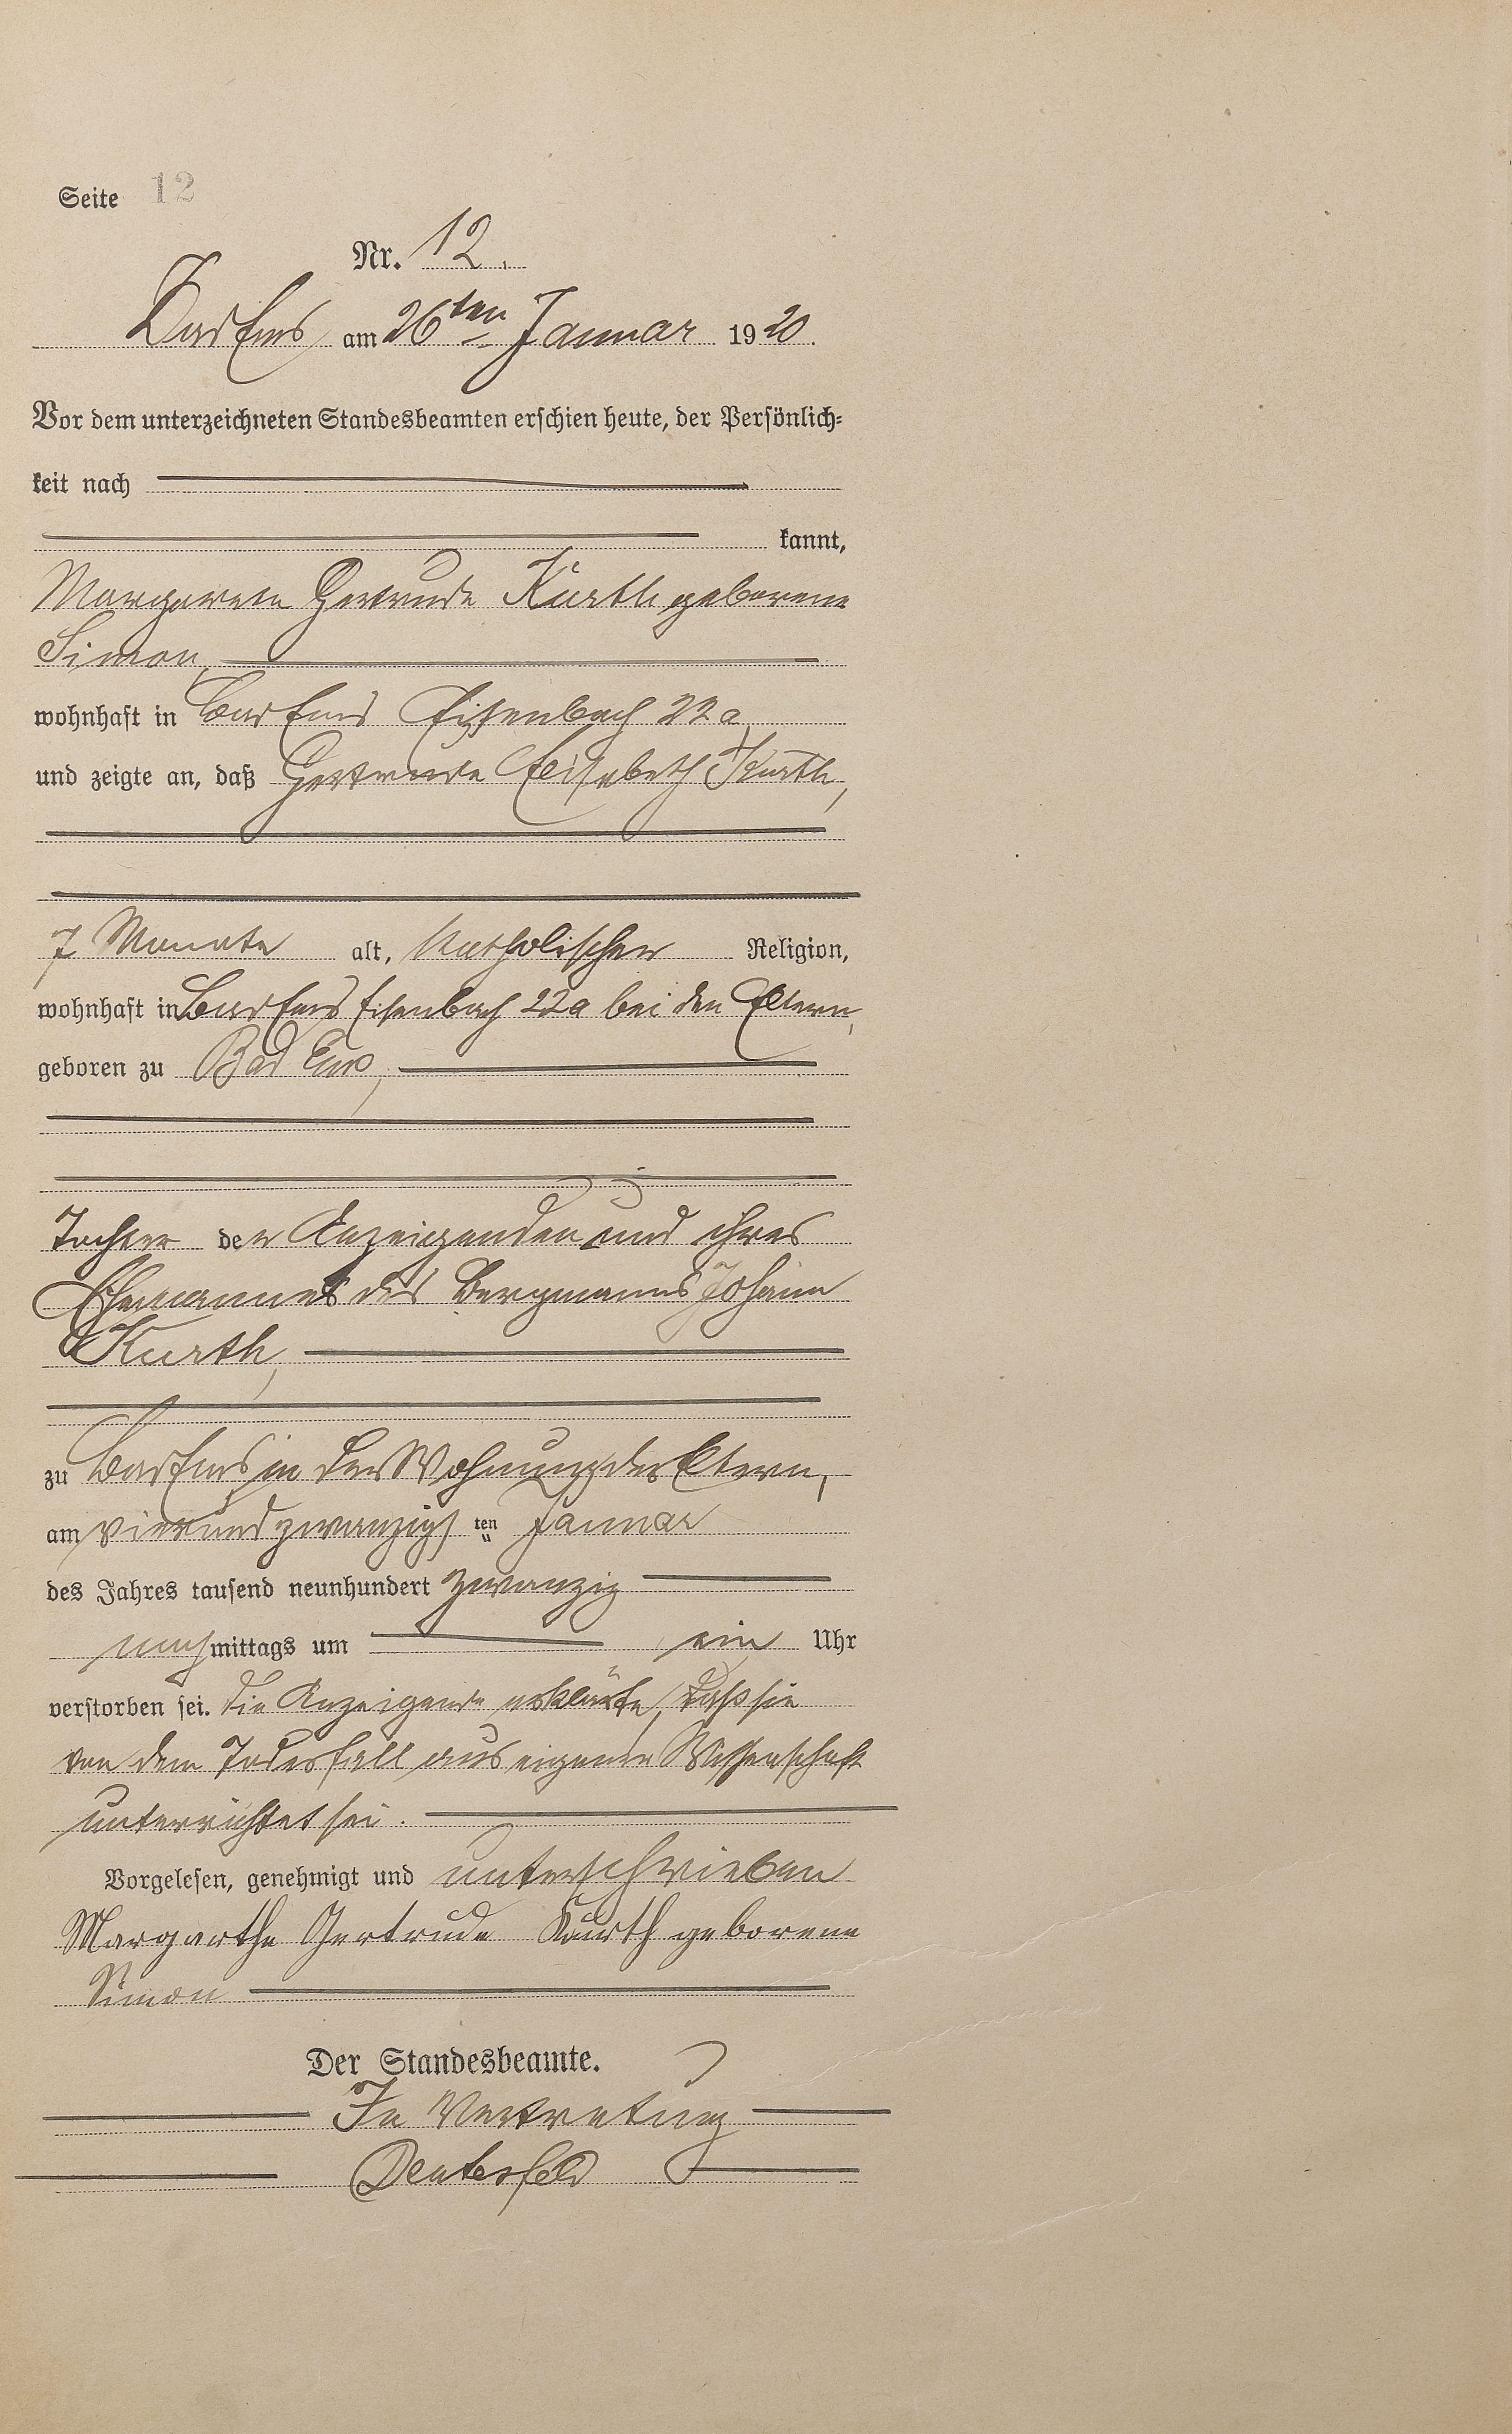 Seite 12
Nr. 12.
Bad Ems am 26ten Januar 1920.
Vor dem unterzeichneten Standesbeamten erschien heute, der Persönlich-
keit nach
kannt,
Margarete Gertrude Kurth geborene
Simon,
wohnhaft in Bad Ems Eisenbach 22a,
und zeigte an, daß Gertrude Elisabeth Kurth,
7 Monate alt, katholischer Religion,
wohnhaft in Bad Ems Eisenbach 22a bei den Eltern,
geboren zu Bad Ems,
Tochter der Anzeigenden und ihres
Ehemannes des Bergmanns Johann
Kurth,
zu Bad Ems in der Wohnung der Eltern,
am vierundzwanzigsten Januar
des Jahres tausend neunhundert zwanzig
nachmittags um ein Uhr
verstorben sei. Die Anzeigende erklärte, daß sie
von dem Todesfall aus eigener Wissenschaft
unterrichtet sei.
Vorgelesen, genehmigt und unterschrieben
Margarthe Gertrude Kurth geborene
Simon
Der Standesbeamte.
In Vertretung